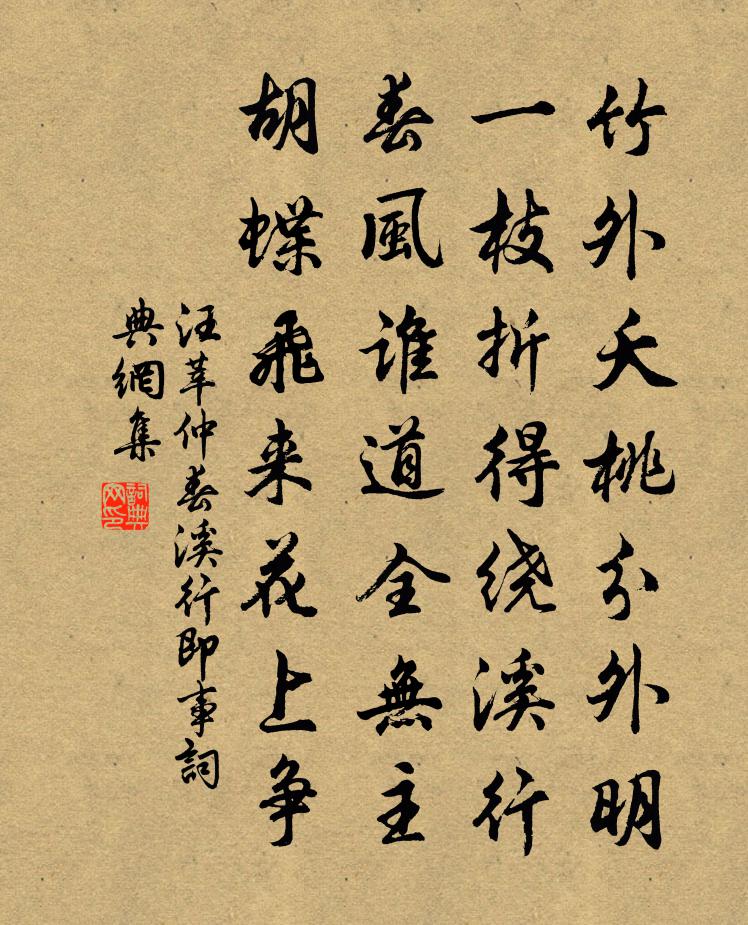 竹外夭桃分外明
一枝折得绕溪行
春風谁道全無主
胡蝶飛来花上争
汪莘仲春溪行即事詞
典網集
詞典
网印